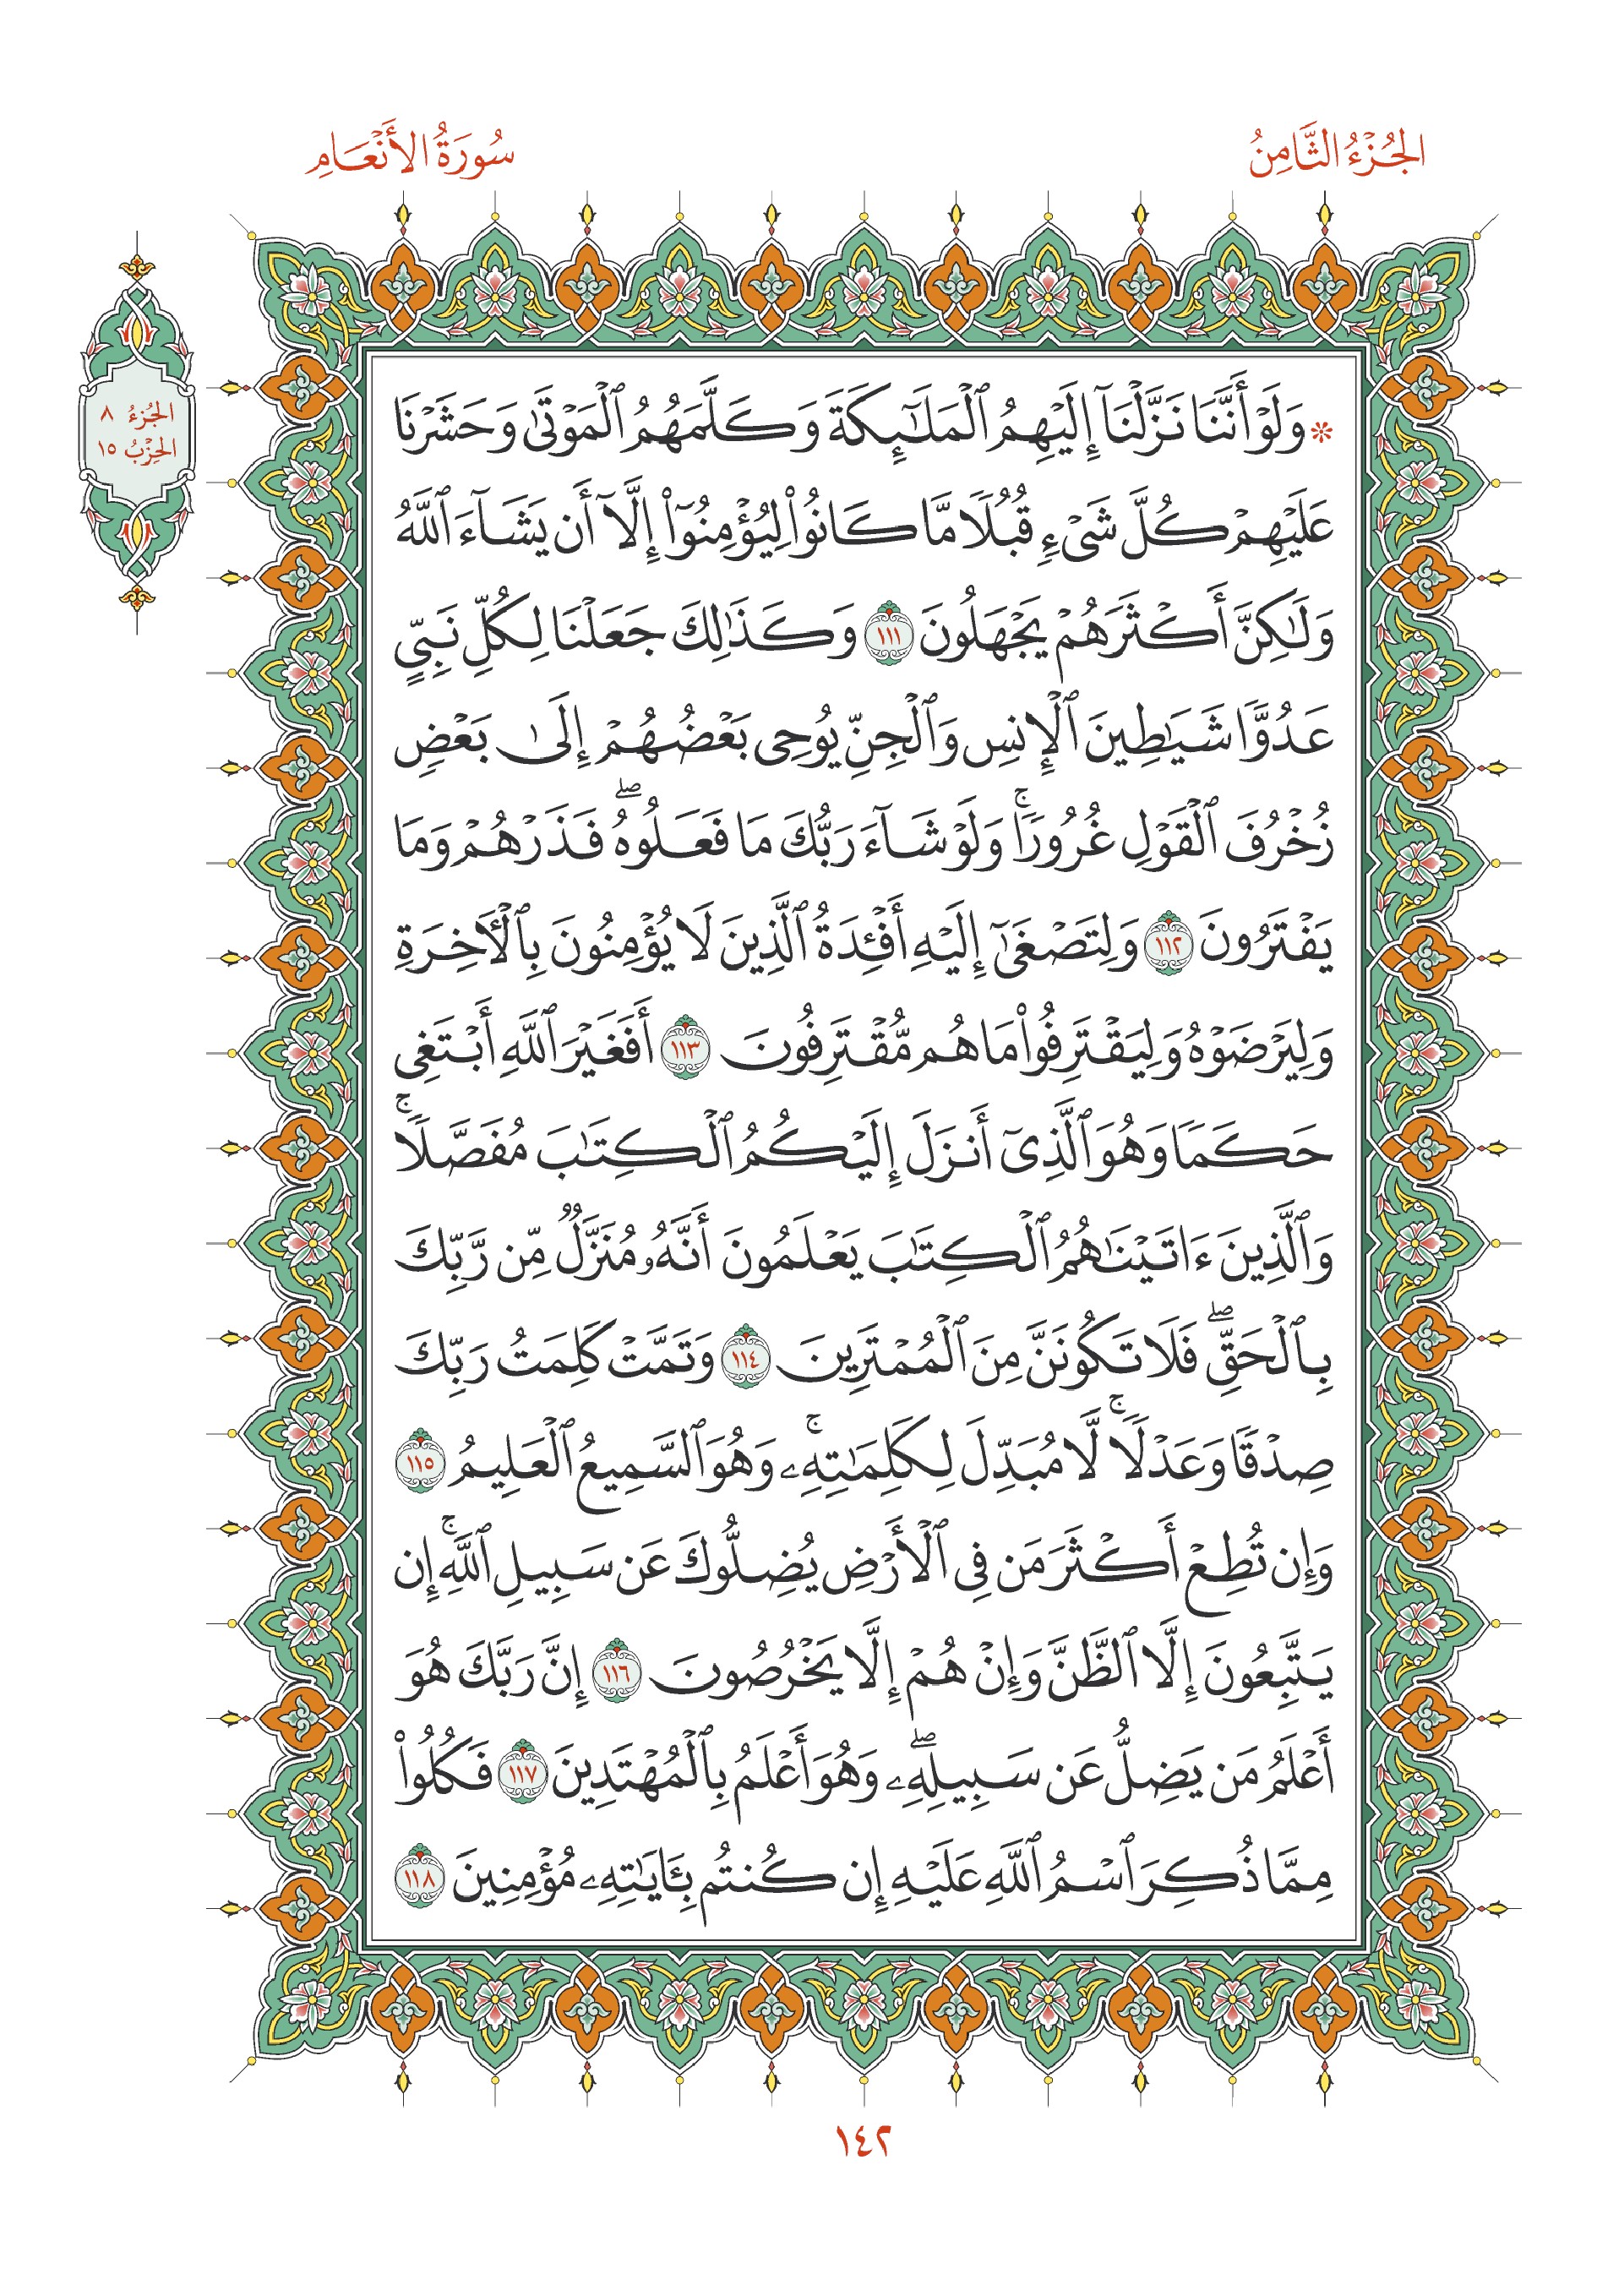 الجُزْءُ الثَّامِنُ
سُورَةُ الأَنْعَامِ
الجُزءُ ٨
الحِزْبُ ١٥
* وَلَوْ أَنَّنَا نَزَّلْنَآ إِلَيْهِمُ ٱلْمَلَـٰٓئِكَةَ وَكَلَّمَهُمُ ٱلْمَوْتَىٰ وَحَشَرْنَا
عَلَيْهِمْ كُلَّ شَىْءٍ قُبُلًا مَّا كَانُوا۟ لِيُؤْمِنُوٓا۟ إِلَّآ أَن يَشَآءَ ٱللَّهُ
وَلَـٰكِنَّ أَكْثَرَهُمْ يَجْهَلُونَ ١١١ وَكَذَٰلِكَ جَعَلْنَا لِكُلِّ نَبِىٍّ
عَدُوًّا شَيَـٰطِينَ ٱلْإِنسِ وَٱلْجِنِّ يُوحِى بَعْضُهُمْ إِلَىٰ بَعْضٍ
زُخْرُفَ ٱلْقَوْلِ غُرُورًا ۚ وَلَوْ شَآءَ رَبُّكَ مَا فَعَلُوهُ ۖ فَذَرْهُمْ وَمَا
يَفْتَرُونَ ١١٢ وَلِتَصْغَىٰٓ إِلَيْهِ أَفْـِٔدَةُ ٱلَّذِينَ لَا يُؤْمِنُونَ بِٱلْـَٔاخِرَةِ
وَلِيَرْضَوْهُ وَلِيَقْتَرِفُوا۟ مَا هُم مُّقْتَرِفُونَ ١١٣ أَفَغَيْرَ ٱللَّهِ أَبْتَغِى
حَكَمًا وَهُوَ ٱلَّذِىٓ أَنزَلَ إِلَيْكُمُ ٱلْكِتَـٰبَ مُفَصَّلًا ۚ
وَٱلَّذِينَ ءَاتَيْنَـٰهُمُ ٱلْكِتَـٰبَ يَعْلَمُونَ أَنَّهُۥ مُنَزَّلٌ مِّن رَّبِّكَ
بِٱلْحَقِّ ۖ فَلَا تَكُونَنَّ مِنَ ٱلْمُمْتَرِينَ ١١٤ وَتَمَّتْ كَلِمَتُ رَبِّكَ
صِدْقًا وَعَدْلًا ۚ لَّا مُبَدِّلَ لِكَلِمَـٰتِهِۦ ۚ وَهُوَ ٱلسَّمِيعُ ٱلْعَلِيمُ ١١٥
وَإِن تُطِعْ أَكْثَرَ مَن فِى ٱلْأَرْضِ يُضِلُّوكَ عَن سَبِيلِ ٱللَّهِ ۚ إِن
يَتَّبِعُونَ إِلَّا ٱلظَّنَّ وَإِنْ هُمْ إِلَّا يَخْرُصُونَ ١١٦ إِنَّ رَبَّكَ هُوَ
أَعْلَمُ مَن يَضِلُّ عَن سَبِيلِهِۦ ۖ وَهُوَ أَعْلَمُ بِٱلْمُهْتَدِينَ ١١٧ فَكُلُوا۟
مِمَّا ذُكِرَ ٱسْمُ ٱللَّهِ عَلَيْهِ إِن كُنتُم بِـَٔايَـٰتِهِۦ مُؤْمِنِينَ ١١٨
١٤٢